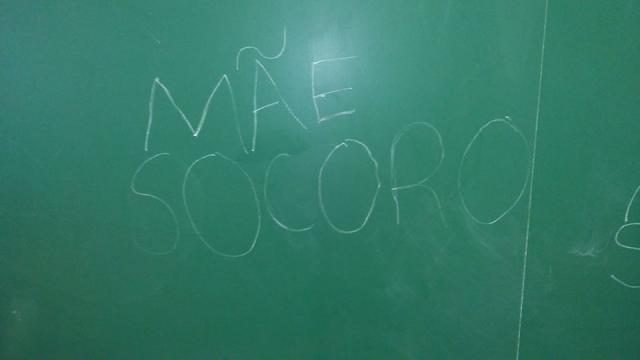 MÃE
SOCORO